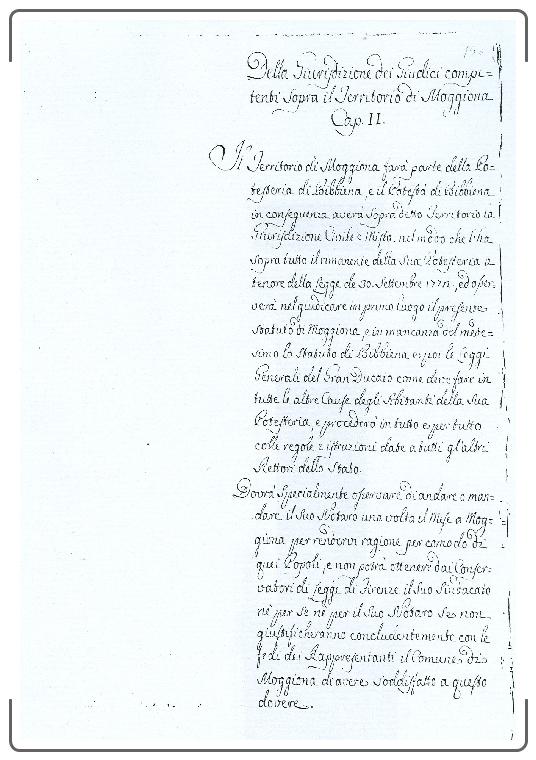 Della Giurisdizione dei Giudici compe=
tenti sopra il Territorio di Moggiona
Cap. II.
Il Territorio di Moggiona farà parte della Po=
testeria di Bibbiena, e il Potestà di Bibbiena
in conseguenza averà sopra detto Territorio la
Giurisdizione Civile e Mista, nel modo che l'ha
sopra tutto il rimanente della sua Potesteria a
tenore della legge de 30. Settembre 1772, ed osser
verà nel giudicare in primo luogo il presente
Statuto di Moggiona, e in mancanza del mede=
simo lo Statuto di Bibbiena e poi le Leggi
Generali del Gran Ducato come deve fare in
tutte le altre Cause degli Abitanti della Sua
Potesteria, e procederà in tutto e per tutto
colle regole e istruzioni date a tutti gl'altri
Rettori dello Stato.
Dovrà specialmente osservare di andare o man=
dare il Suo Notaro una volta il Mese a Mog=
giona per rendervi ragione per comodo di
quei Popoli, e non potrà ottenere dai Conser=
vatori di Leggi di Firenze il Suo Sindacato
nè per se nè per il Suo Notaro se non
giustificheranno concludentemente con le
fedi dei Rappresentanti il Comune di
Moggiona di avere soddisfatto a questo
dovere.